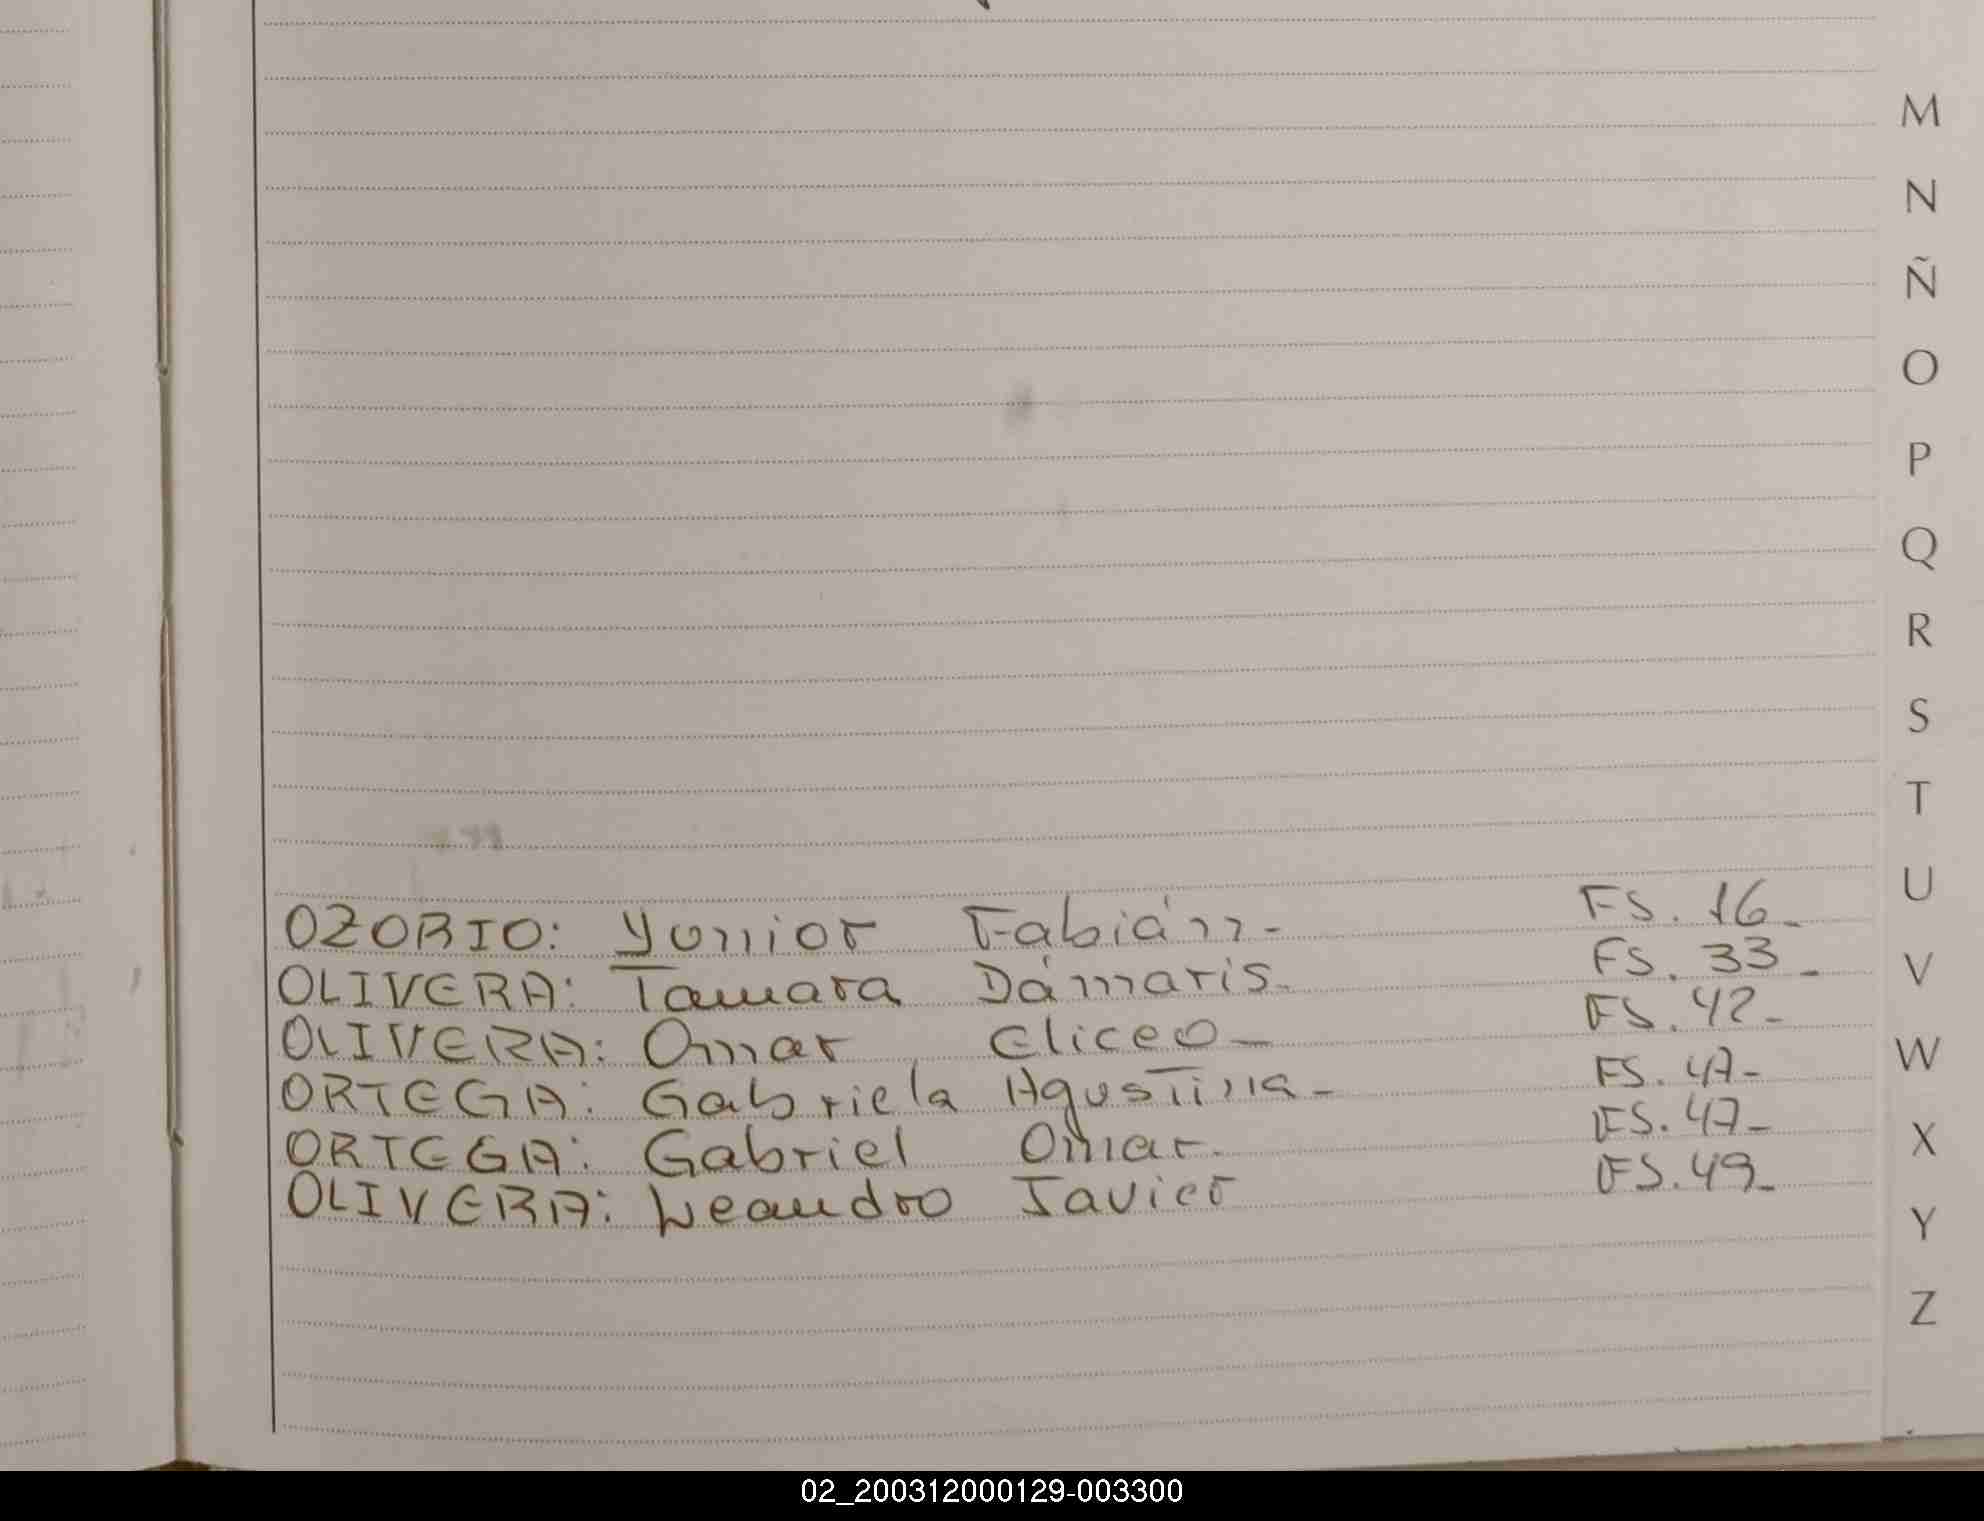 OZORIO: Yonior Fabián- FS. 16-
OLIVERA: Tamara Dámaris. FS. 33-
OLIVERA: Omar Eliceo- FS. 42-
ORTEGA: Gabriela Agustina- FS. 47-
ORTEGA: Gabriel Omar. FS. 47-
OLIVERA: Leandro Javier FS. 49-
M
N
Ñ
O
P
Q
R
S
T
U
V
W
X
Y
Z
02_200312000129-003300